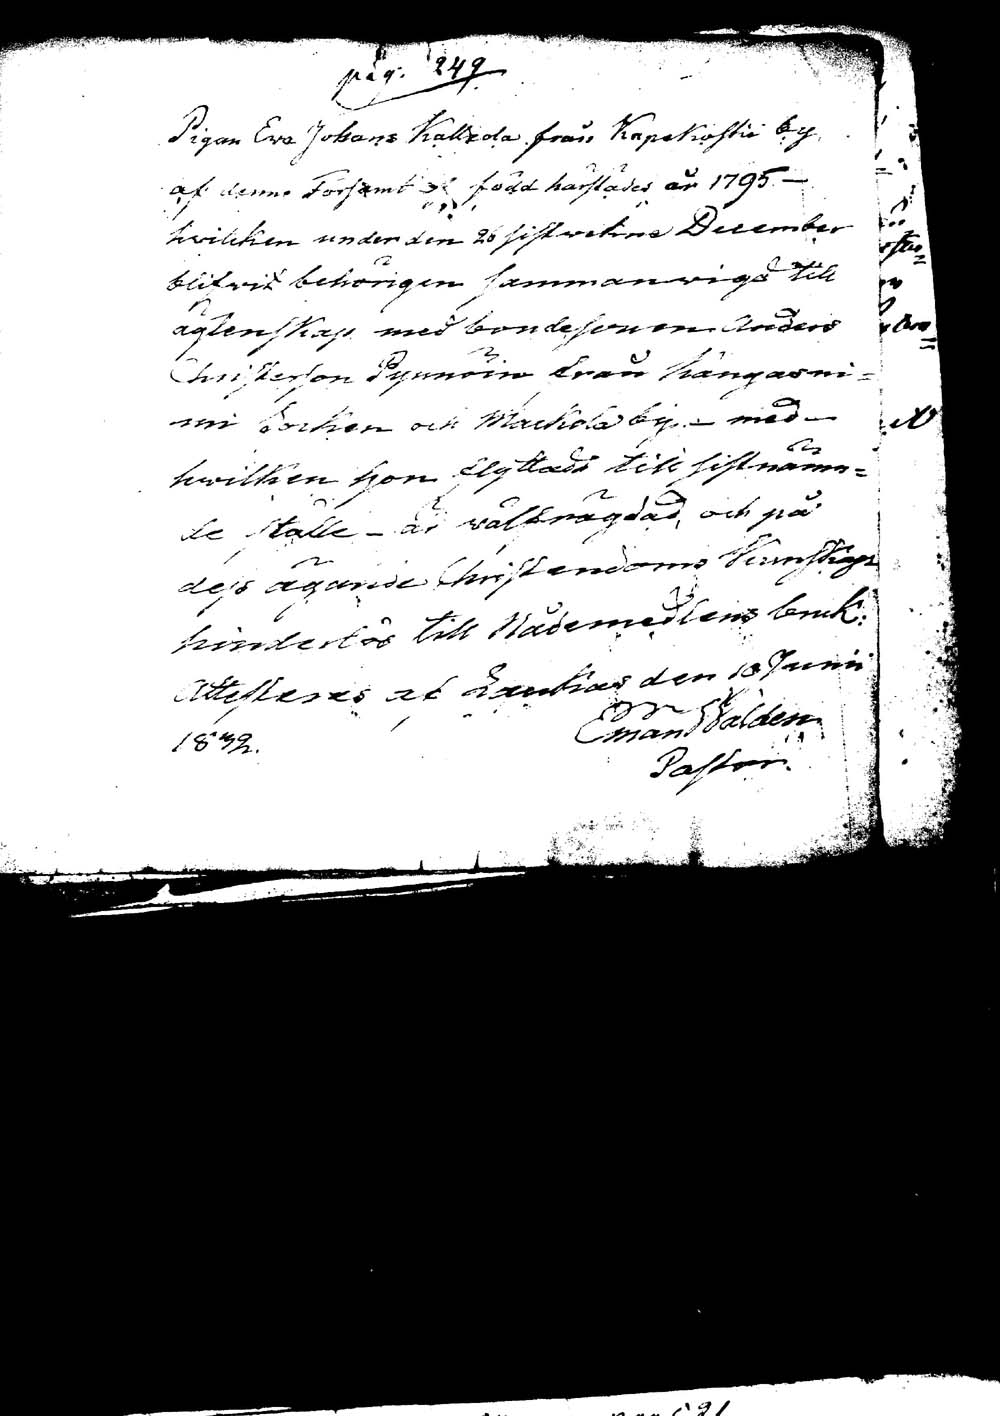 pag. 249
Pigan Eva Johans Kallsda från Kapakoski by
af denna Församl född härstädes år 1795 —
hwilcken under den 26 sistwekne December
blifwit behörigen sammanwigd till
ägtenskap med bondesonen Anders
Christerson Pynnöin från Kangasni=
mi Socken och Mackola by — med
hwilken hon flyttade till sistnämn=
de ställe — är wälfrägdad, och på
dess ägande Christendoms Kunskap
hinderlös till Nådemedlens bruk.
Attesteras af Laukas den 10 Junii
1832.
Eman Walden
Pastor.